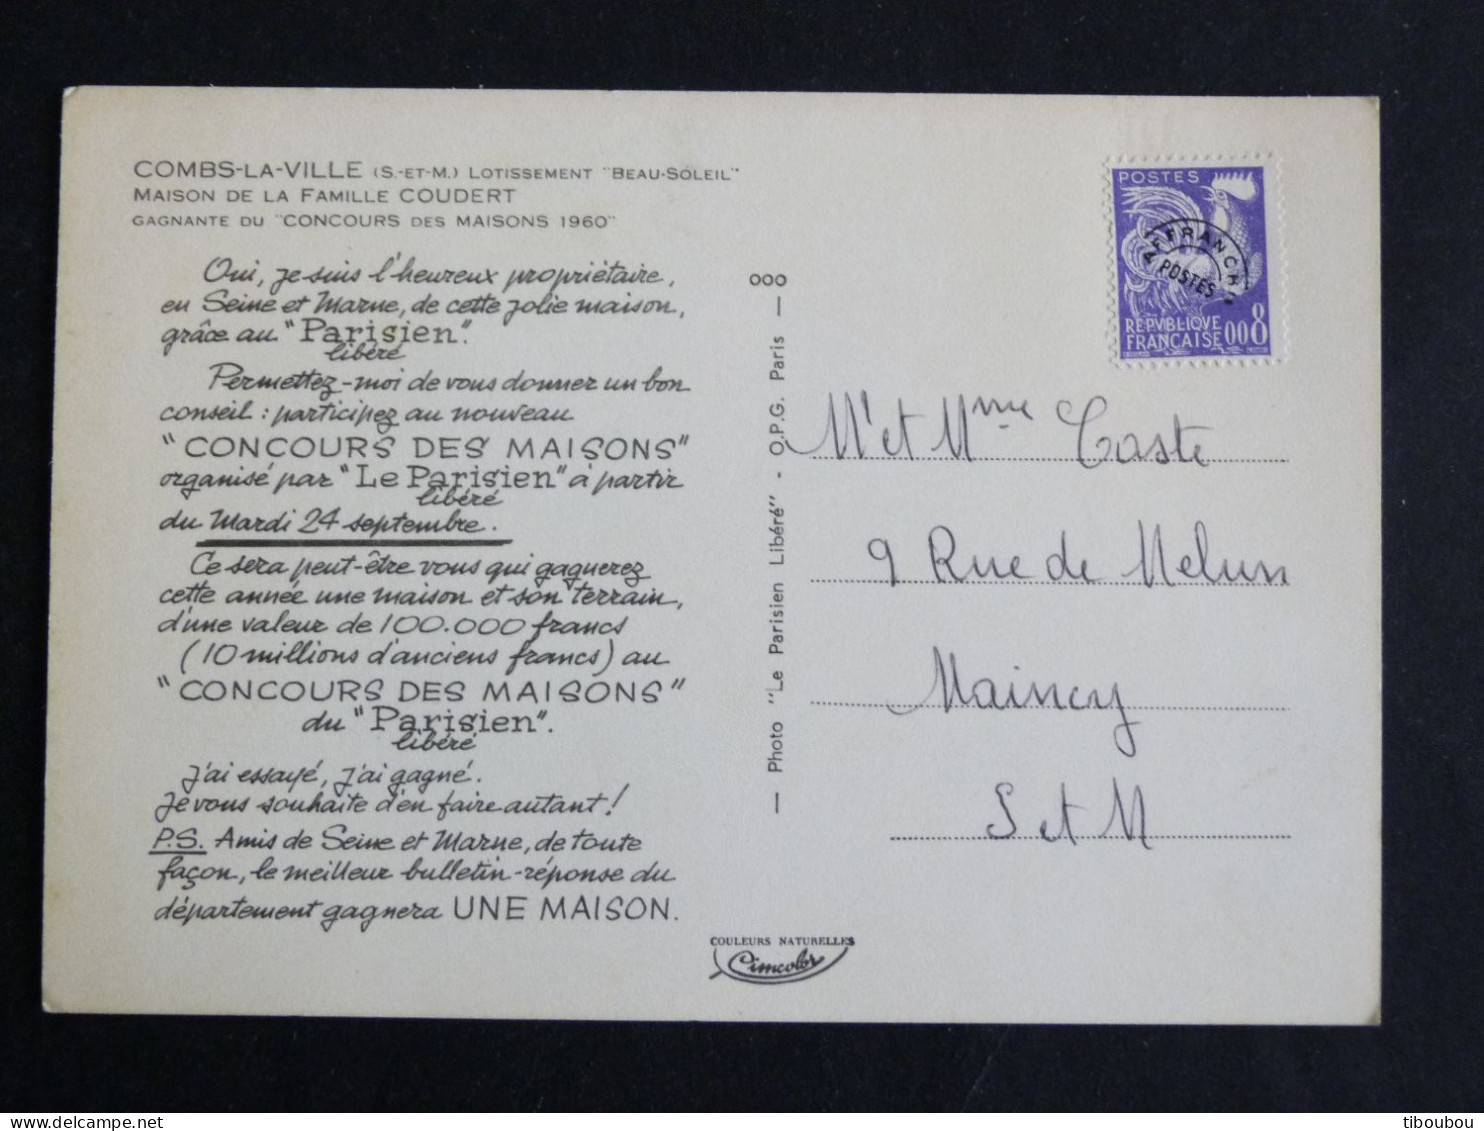 COMBS-LA-VILLE (S.-ET-M.) LOTISSEMENT "BEAU-SOLEIL"
MAISON DE LA FAMILLE COUDERT
GAGNANTE DU "CONCOURS DES MAISONS 1960"
Oui, je suis l'heureux propriétaire,
en Seine et Marne, de cette jolie maison,
grâce au "Parisien".
libéré
Permettez-moi de vous donner un bon
conseil : participez au nouveau
"CONCOURS DES MAISONS"
organisé par "Le Parisien" à partir
libéré
du Mardi 24 septembre.
Ce sera peut-être vous qui gagnerez
cette année une maison et son terrain,
d'une valeur de 100.000 francs
(10 millions d'anciens francs) au
"CONCOURS DES MAISONS"
du "Parisien".
libéré
J'ai essayé, j'ai gagné.
Je vous souhaite d'en faire autant !
P.S. Amis de Seine et Marne, de toute
façon, le meilleur bulletin-réponse du
département gagnera UNE MAISON.
COULEURS NATURELLES
Cimcolor
000
— Photo "Le Parisien Libéré" - O.P.G. Paris —
POSTES
AFFRANCHts
POSTES
REPVBLIQVE
FRANÇAISE 008
Mr et Mme Caste
9 Rue de Melun
Maincy
S et M
tiboubou
delcampe.net